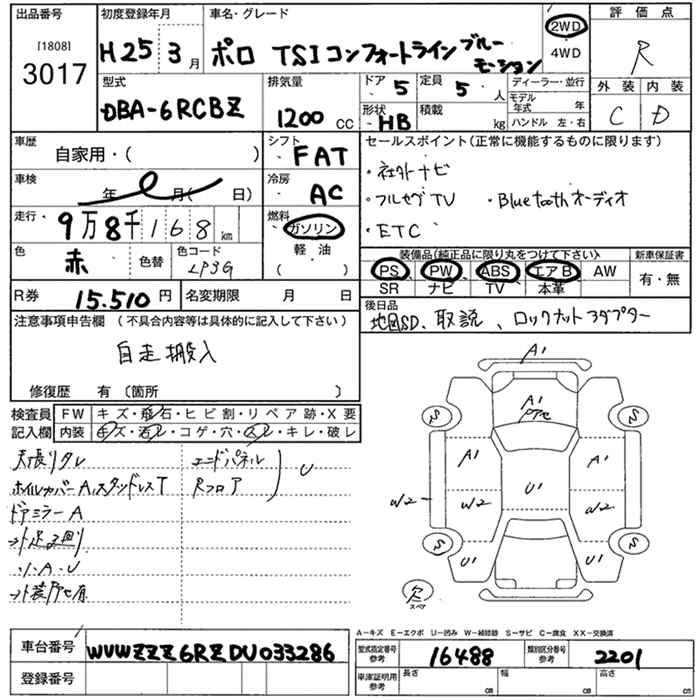 出品番号
[1808]
3017
初度登録年月
H25 3月
車名・グレード
ポロ TSIコンフォートライン ブルー
モーション
2WD
4WD
評価点
R
外装 内装
C D
型式
DBA-6RCBZ
排気量
1200 CC
ドア 5
定員 5 人
形状 HB
積載 kg
ディーラー・並行
モデル年式 年
ハンドル 左・右
車歴
自家用・( )
シフト
FAT
車検
年 月( 日)
冷房
AC
走行・
9万8千168 km
燃料
ガソリン
軽・油
( )
色
赤
色替
色コード
LP3G
R券 15.510 円
名変期限 月 日
セールスポイント(正常に機能するものに限ります)
・社外ナビ
・フルセグTV ・Bluetoothオーディオ
・ETC
装備品(純正品に限り丸をつけて下さい)
PS PW ABS エアB AW
SR ナビ TV 本革
新車保証書
有・無
後日品
地図SD、取説、ロックナットアダプター
注意事項申告欄 (不具合内容等は具体的に記入して下さい)
自走搬入
修復歴 有 (箇所 )
検査員 FW キズ・飛石・ヒビ割・リペア跡・X要
記入欄 内装 キズ・汚レ・コゲ・穴・スレ・キレ・破レ
天張りタレ
ホイルカバーA,スタッドレスT
ドアミラーA
エンドパネル
Rフロア
U
A1
A1
S
S
A1
A1
W2
W2
W2
U1
S
S
U1
U1
欠
スペア
A-キズ E-エクボ U-凹み W-補修跡 S-サビ C-腐食 XX-交換済
車台番号 WVWZZZ6RZDU033286
登録番号
型式指定番号
参考
16488
類別区分番号
参考
2201
車庫証明用
参考
長さ cm
幅 cm
高さ cm